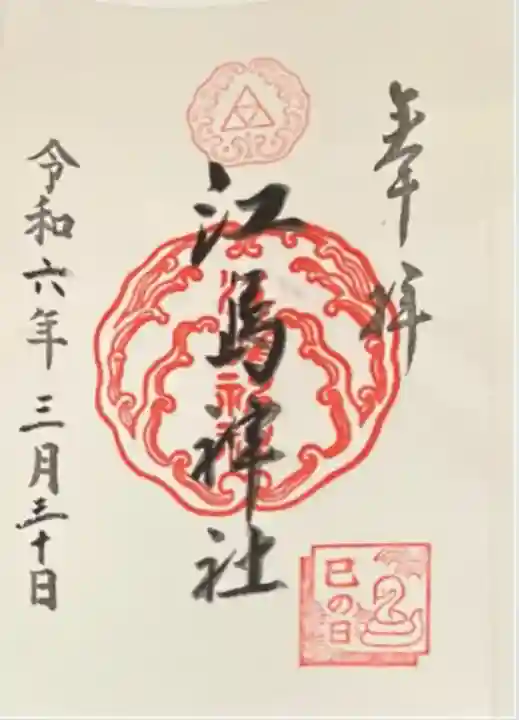 奉拝
江島神社
令和六年 三月三十日
巳の日